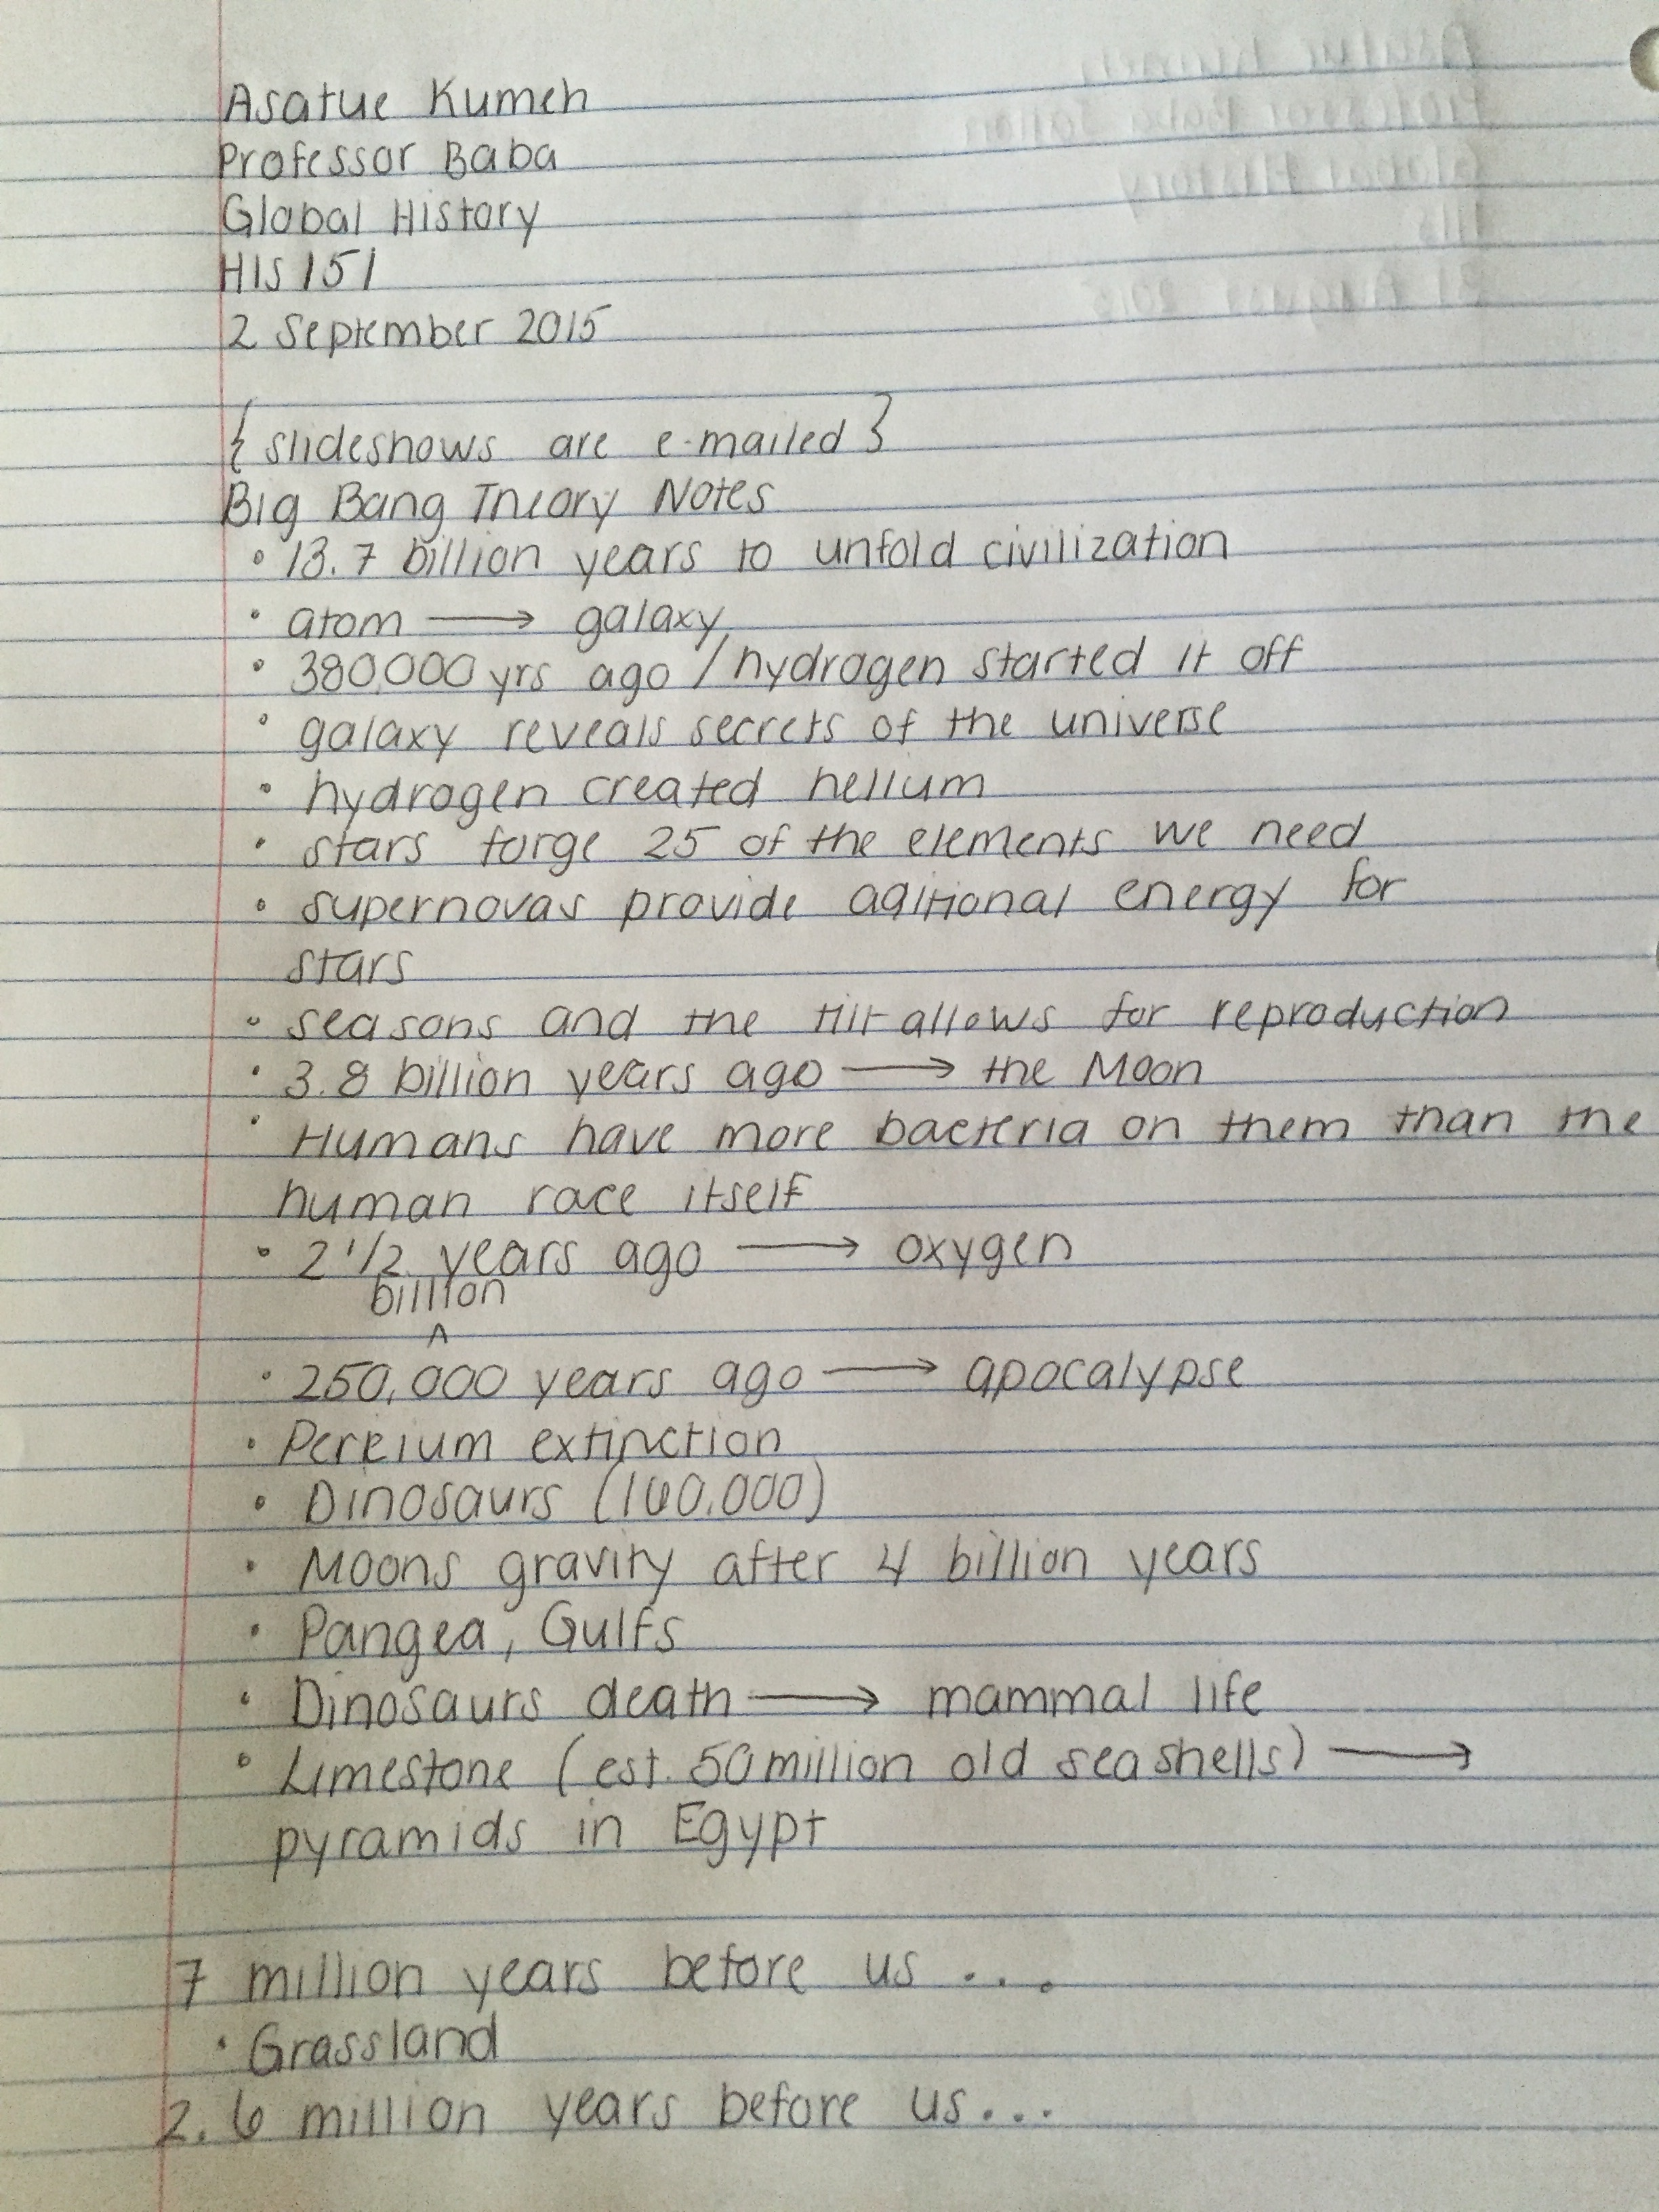 Asatue Kumeh
Professor Baba
Global History
HIS 151
2 September 2015
{ slideshows are e-mailed }
Big Bang Theory Notes
• 13.7 billion years to unfold civilization
• atom → galaxy
• 380,000 yrs ago / hydrogen started it off
• galaxy reveals secrets of the universe
• hydrogen created helium
• stars forge 25 of the elements we need
• supernovas provide aditional energy for
stars
• seasons and the tilt allows for reproduction
• 3.8 billion years ago → the Moon
• Humans have more bacteria on them than the
human race itself
• 2 1/2 years ago → oxygen
billion
^
• 250,000 years ago → apocalypse
• extinction
• Dinosaurs (160,000)
• Moons gravity after 4 billion years
• Pangea, Gulfs
• Dinosaurs death → mammal life
• Limestone (est. 50 million old seashells) →
pyramids in Egypt
7 million years before us ...
• Grassland
2.6 million years before us...